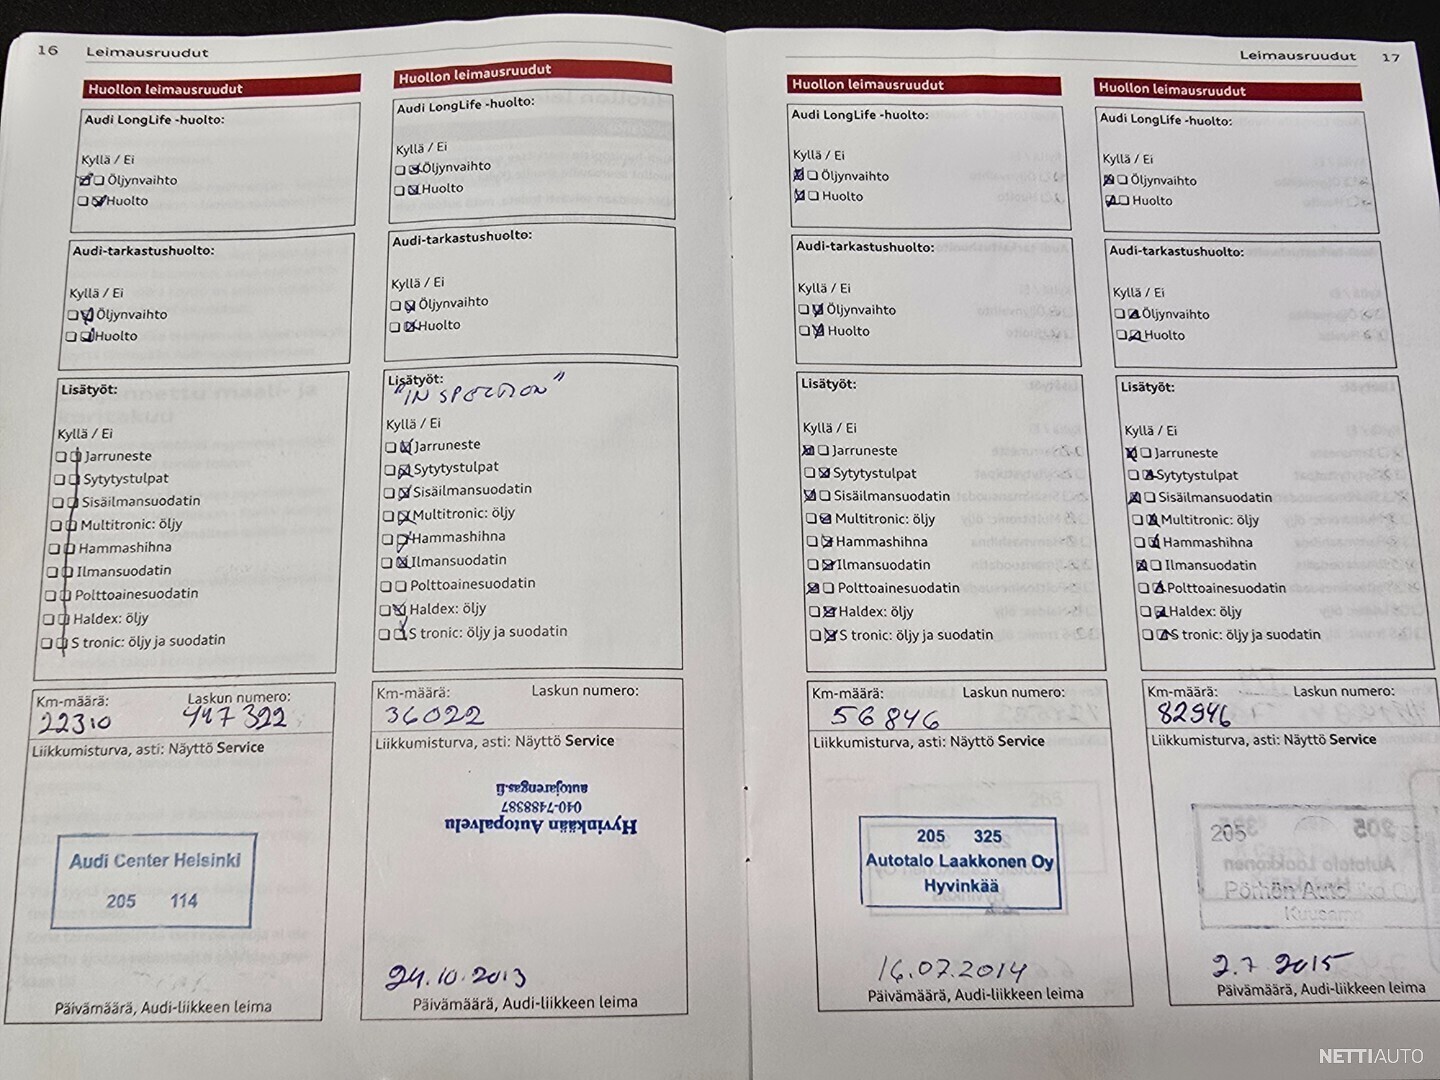 16 Leimausruudut
Huollon leimausruudut
Audi LongLife -huolto:
Kyllä / Ei
Öljynvaihto
Huolto
Audi-tarkastushuolto:
Kyllä / Ei
Öljynvaihto
Huolto
Lisätyöt:
Kyllä / Ei
Jarruneste
Sytytystulpat
Sisäilmansuodatin
Multitronic: öljy
Hammashihna
Ilmansuodatin
Polttoainesuodatin
Haldex: öljy
S tronic: öljy ja suodatin
Km-määrä: Laskun numero:
22310 447322
Liikkumisturva, asti: Näyttö Service
Audi Center Helsinki
205 114
Päivämäärä, Audi-liikkeen leima
Huollon leimausruudut
Audi LongLife -huolto:
Kyllä / Ei
Öljynvaihto
Huolto
Audi-tarkastushuolto:
Kyllä / Ei
Öljynvaihto
Huolto
Lisätyöt:
"INSPECTION"
Kyllä / Ei
Jarruneste
Sytytystulpat
Sisäilmansuodatin
Multitronic: öljy
Hammashihna
Ilmansuodatin
Polttoainesuodatin
Haldex: öljy
S tronic: öljy ja suodatin
Km-määrä: Laskun numero:
36022
Liikkumisturva, asti: Näyttö Service
Hyvinkään Autopalvelu
040-7488387
autojarengas.fi
24.10.2013
Päivämäärä, Audi-liikkeen leima
Leimausruudut 17
Huollon leimausruudut
Audi LongLife -huolto:
Kyllä / Ei
Öljynvaihto
Huolto
Audi-tarkastushuolto:
Kyllä / Ei
Öljynvaihto
Huolto
Lisätyöt:
Kyllä / Ei
Jarruneste
Sytytystulpat
Sisäilmansuodatin
Multitronic: öljy
Hammashihna
Ilmansuodatin
Polttoainesuodatin
Haldex: öljy
S tronic: öljy ja suodatin
Km-määrä: Laskun numero:
56846
Liikkumisturva, asti: Näyttö Service
205 325
Autotalo Laakkonen Oy
Hyvinkää
16.07.2014
Päivämäärä, Audi-liikkeen leima
Huollon leimausruudut
Audi LongLife -huolto:
Kyllä / Ei
Öljynvaihto
Huolto
Audi-tarkastushuolto:
Kyllä / Ei
Öljynvaihto
Huolto
Lisätyöt:
Kyllä / Ei
Jarruneste
Sytytystulpat
Sisäilmansuodatin
Multitronic: öljy
Hammashihna
Ilmansuodatin
Polttoainesuodatin
Haldex: öljy
S tronic: öljy ja suodatin
Km-määrä: Laskun numero:
82946
Liikkumisturva, asti: Näyttö Service
205
Oy
Kuusamo
2.7.2015
Päivämäärä, Audi-liikkeen leima
NETTIAUTO